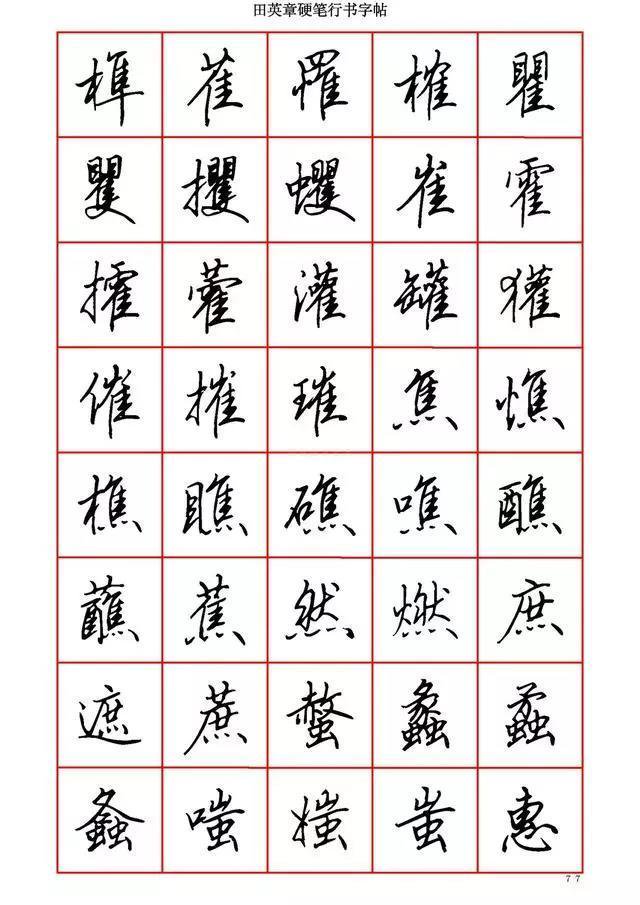 田英章硬笔行书字帖
榫 萑 罹 榷 瞿
矍 攫 蠼 崔 霍
攉 藿 灌 罐 獾
催 摧 璀 焦 憔
樵 瞧 礁 噍 醮
蘸 蕉 然 燃 庶
遮 蔗 蠡 蟊
螽 嗤 媸 蚩 惠
77